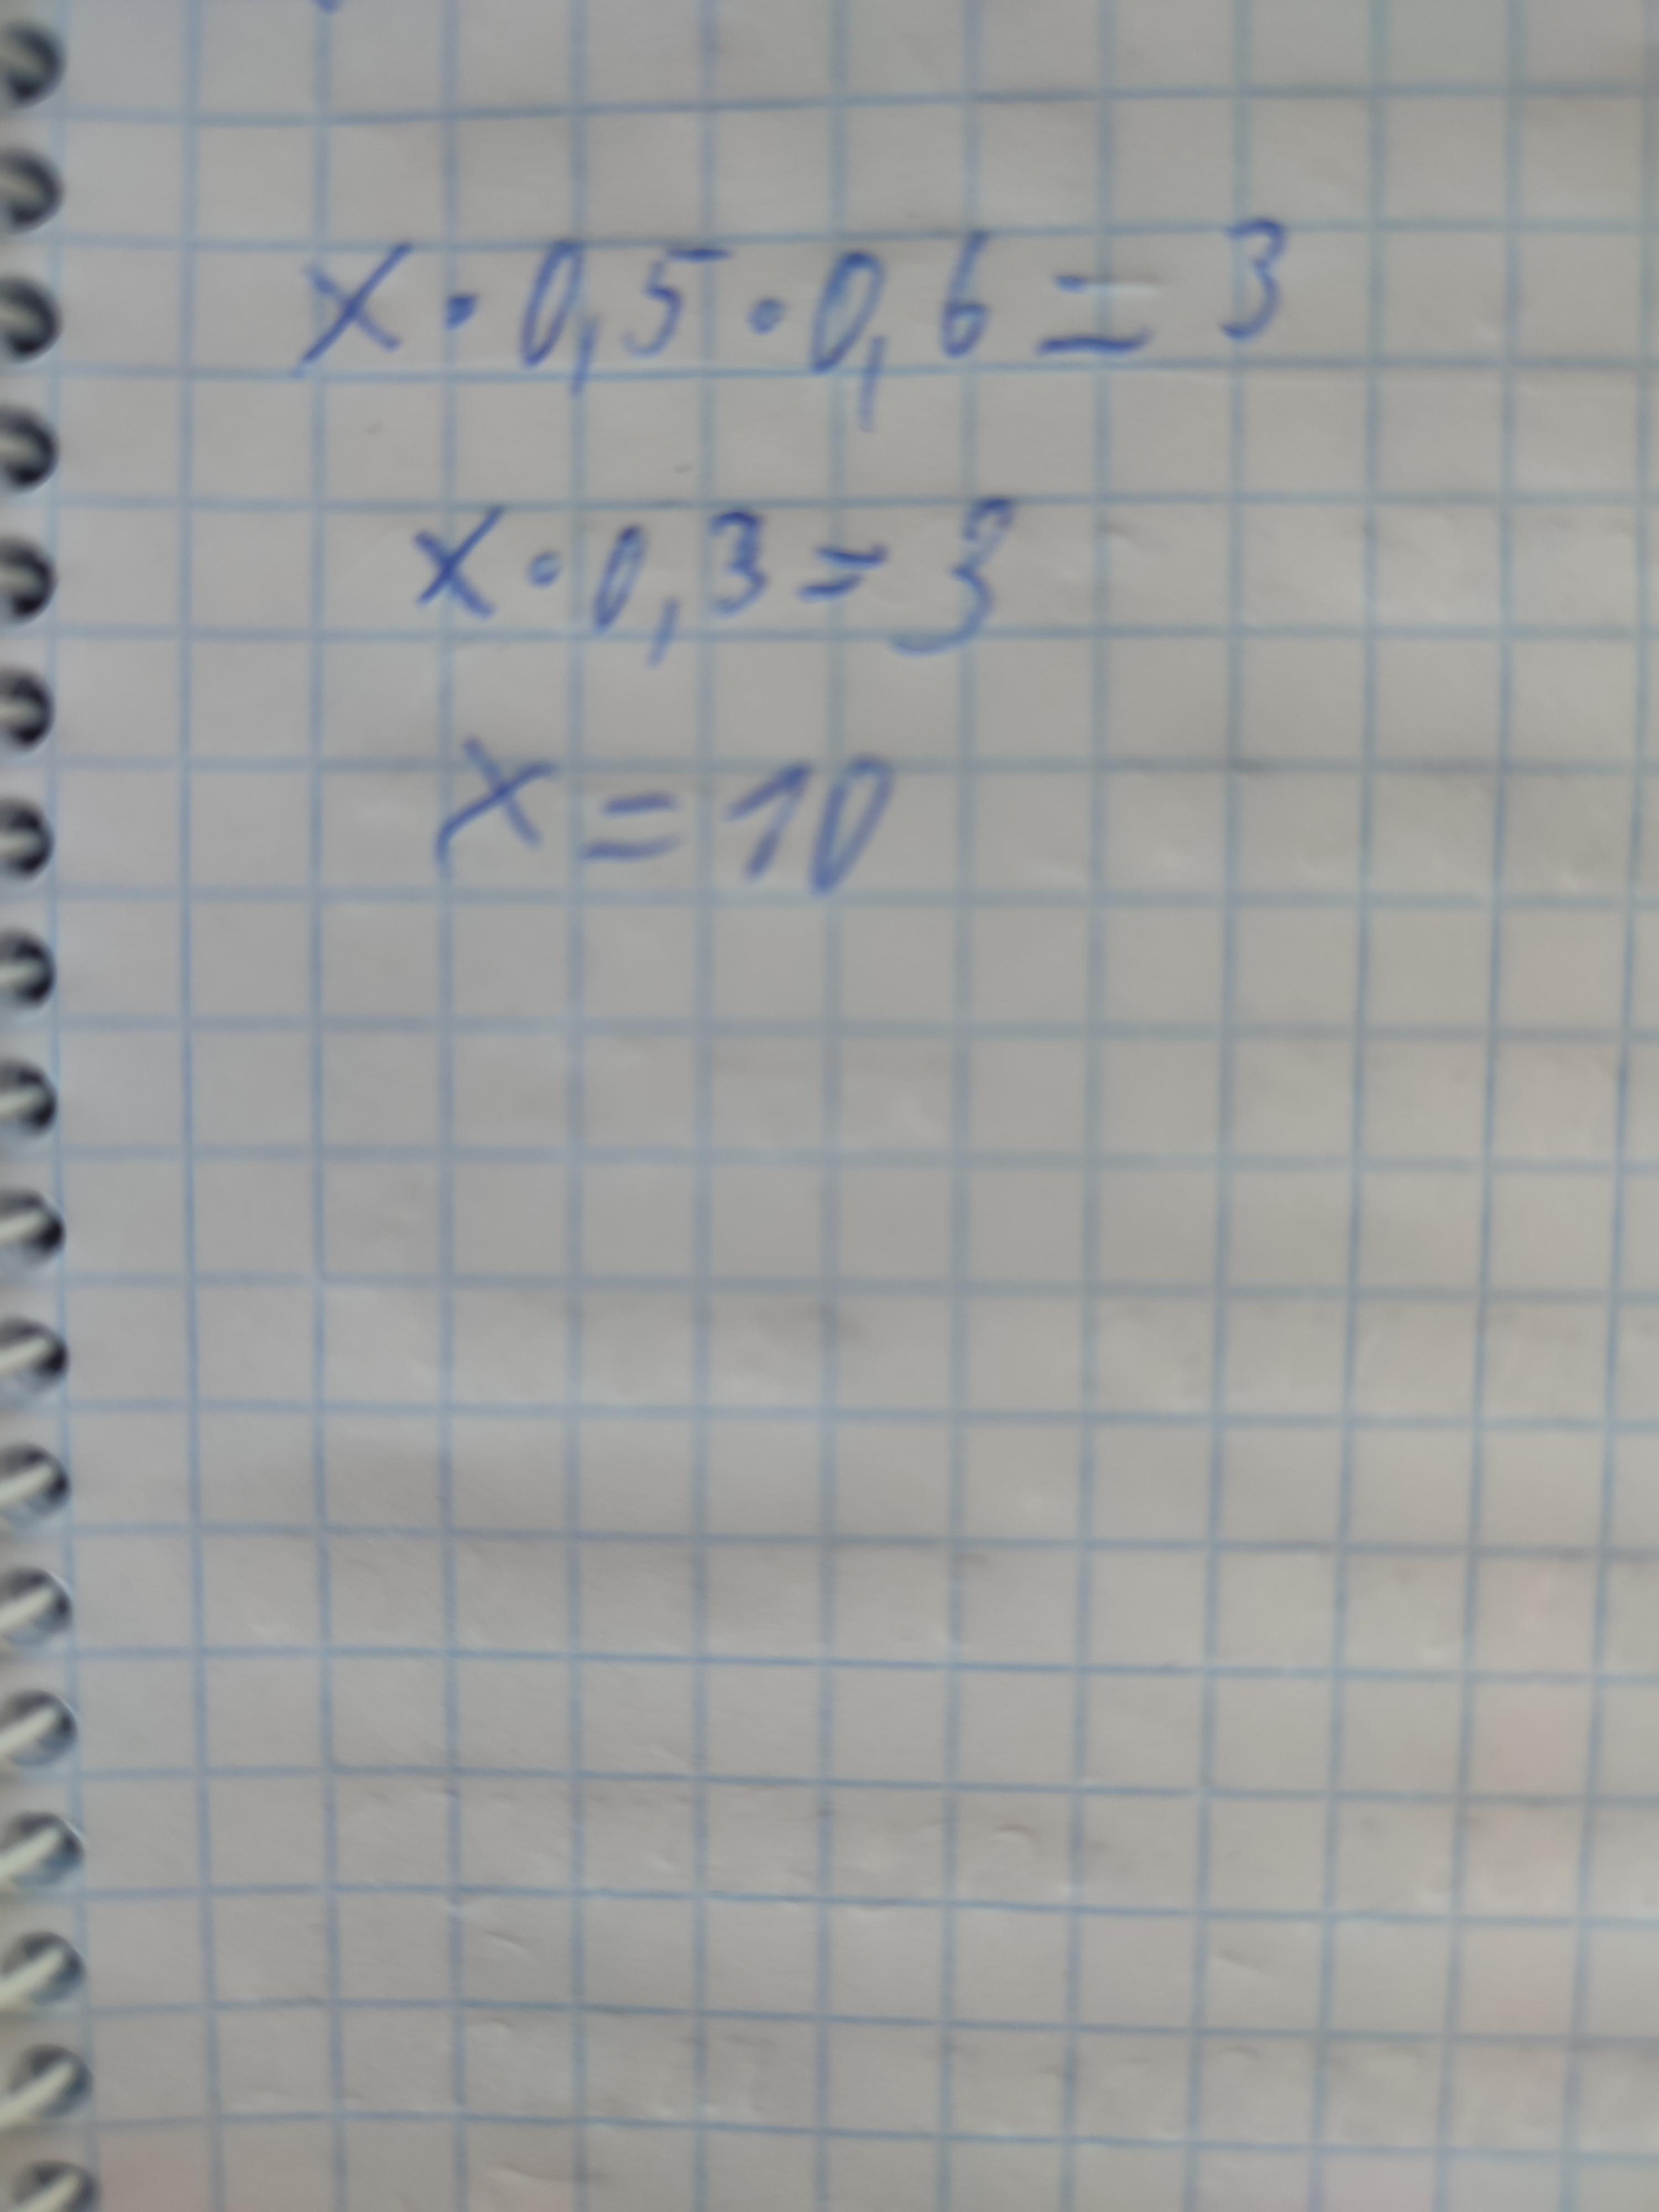 x · 0,5 · 0,6 = 3
x · 0,3 = 3
x = 10